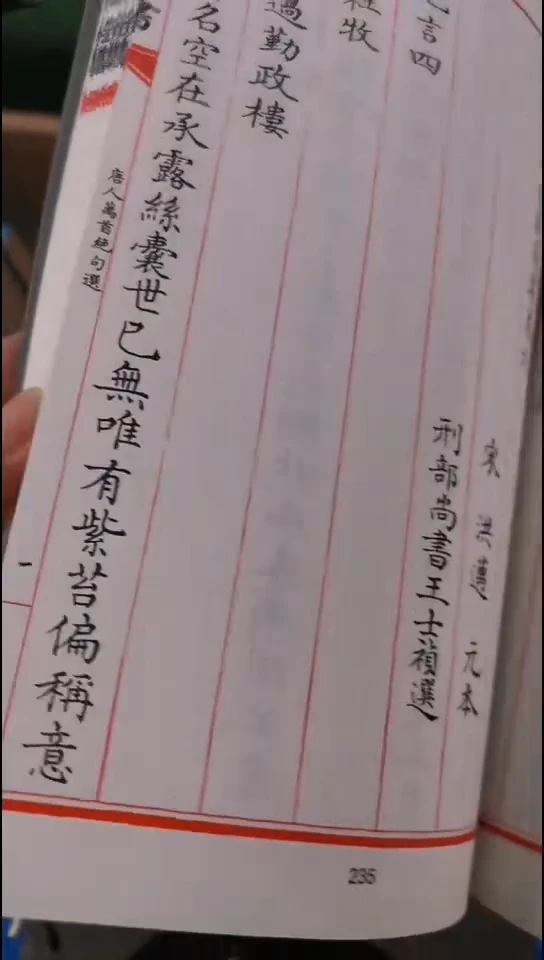 宋 洪邁 元本
刑部尚書王士禎選
言四
牧
過勤政樓
名空在承露絲囊世已無唯有紫苔偏稱意
唐人萬首絕句選
一
235